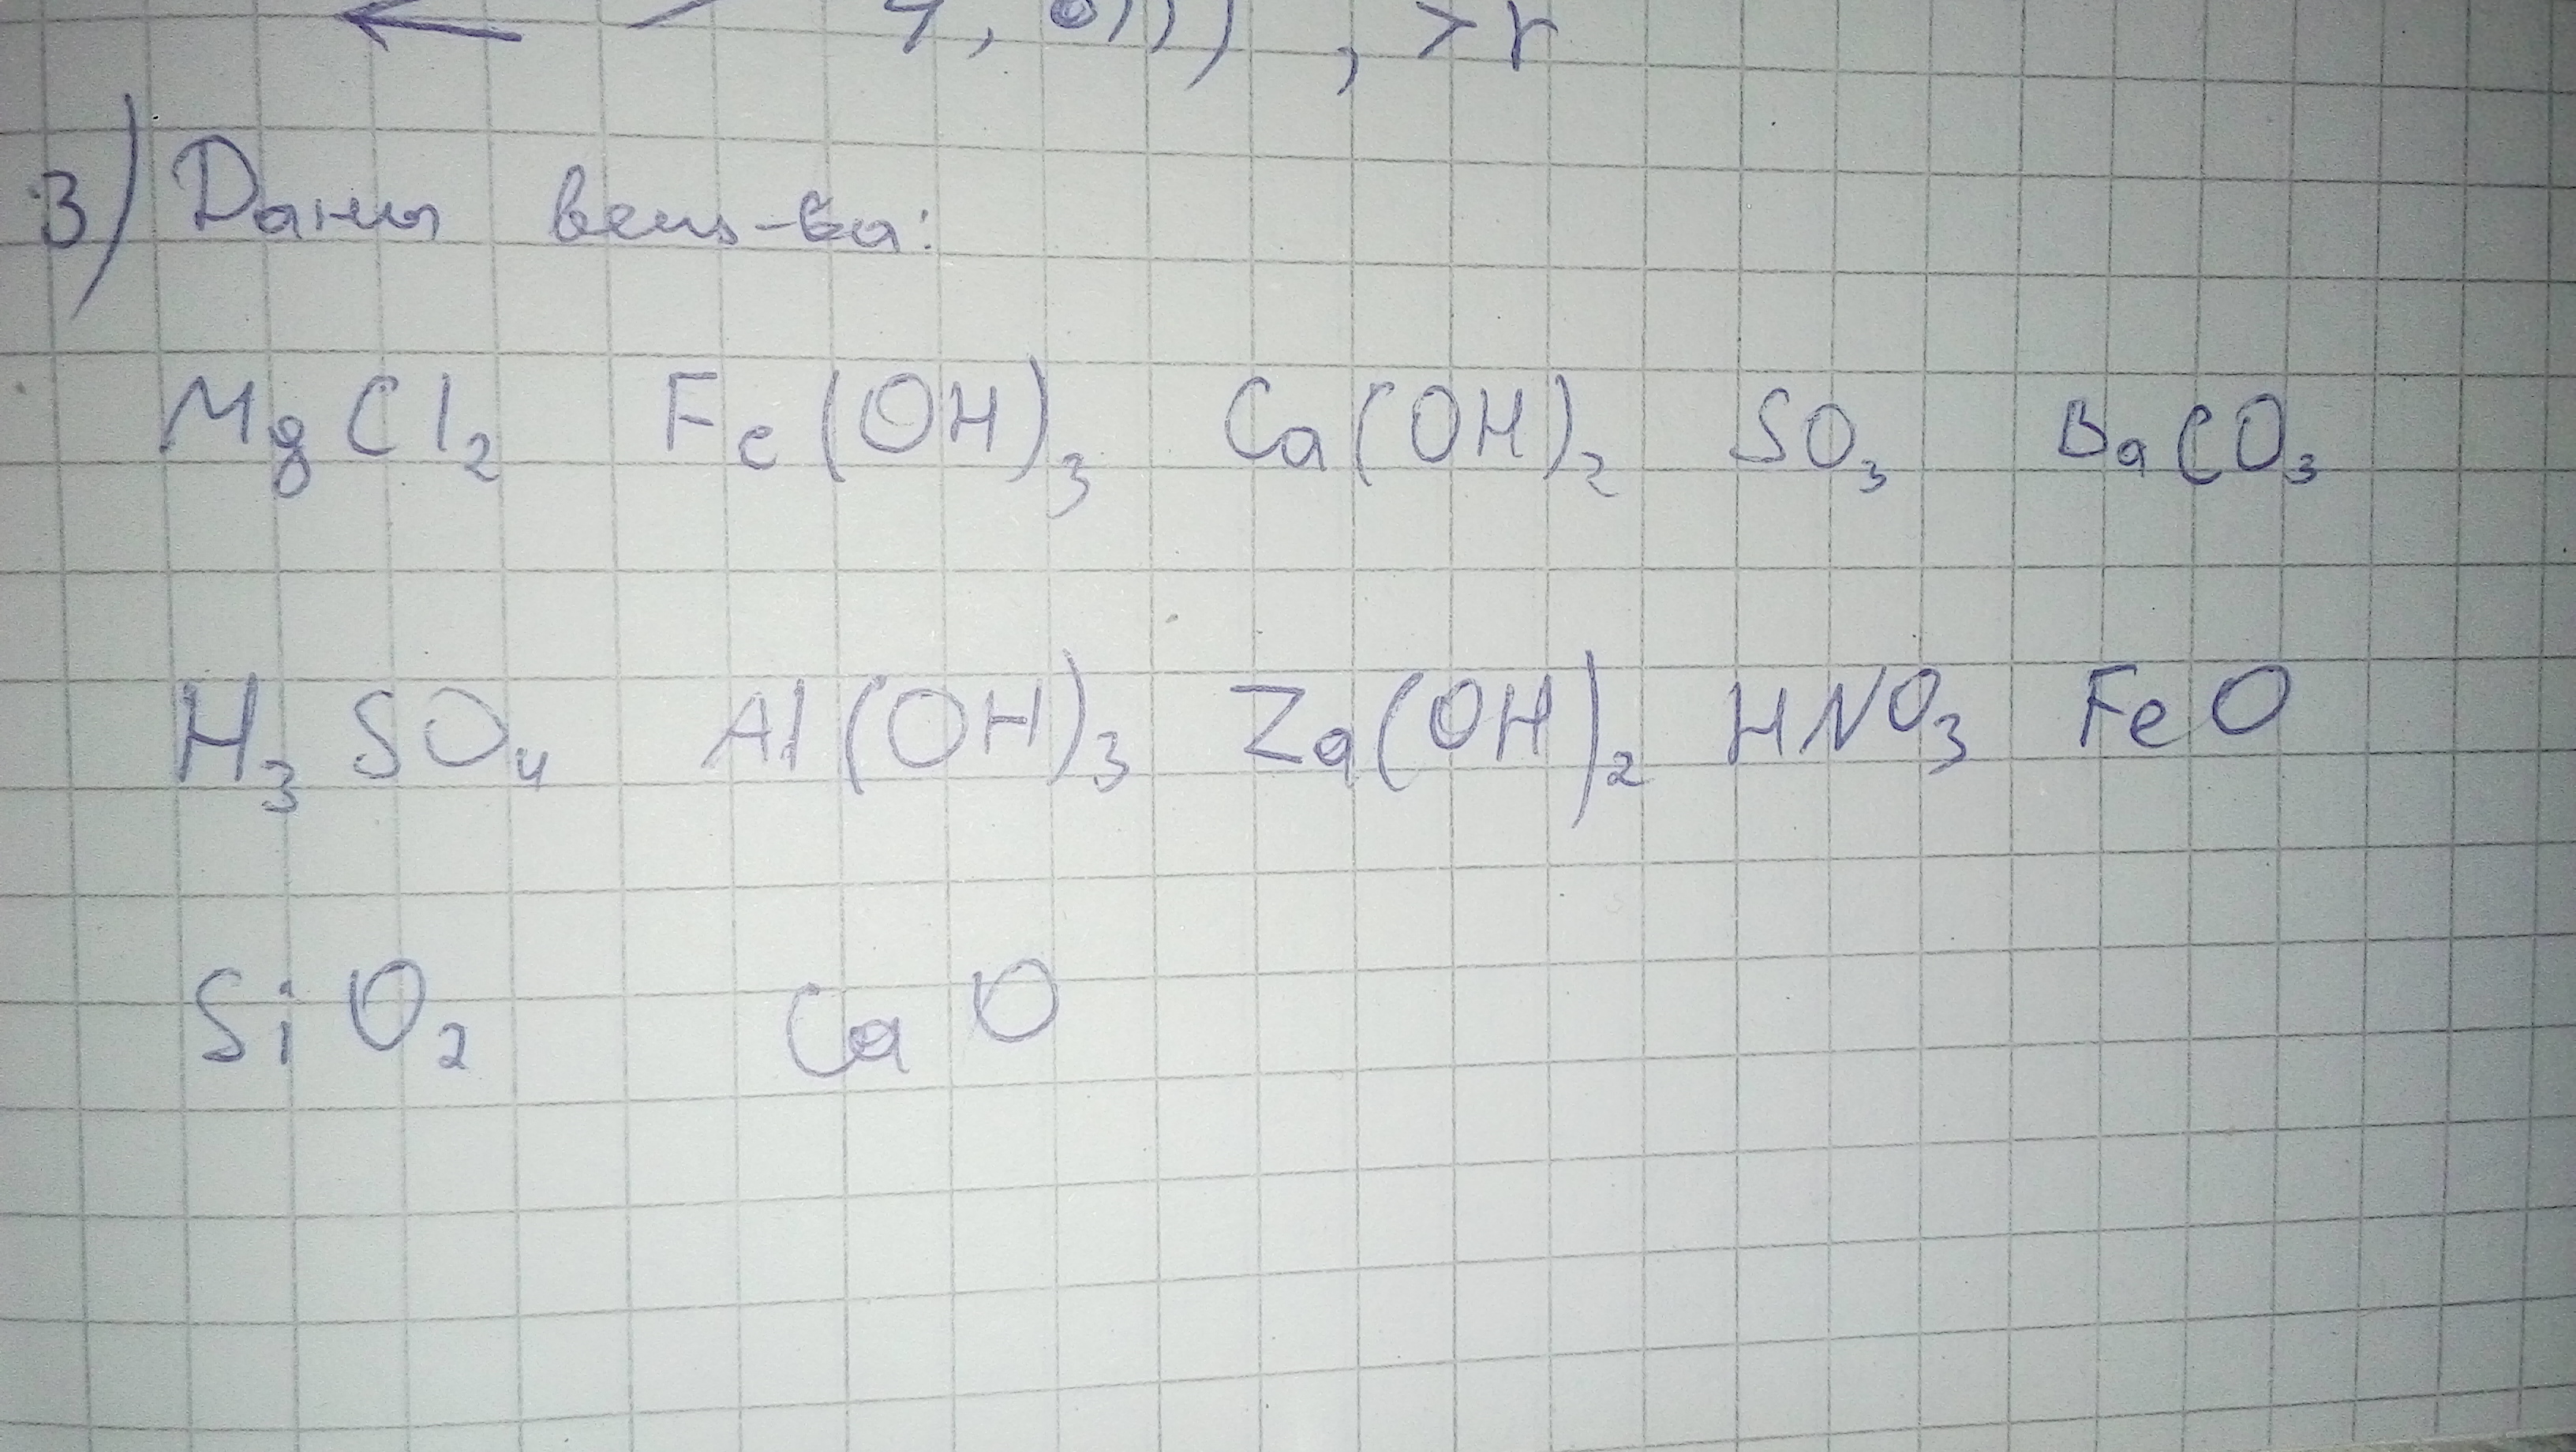 3) Даны вещ-ва:
MgCl₂ Fe(OH)₃ Ca(OH)₂ SO₃ BaCO₃
H₃SO₄ Al(OH)₃ Za(OH)₂ HNO₃ FeO
SiO₂ CaO